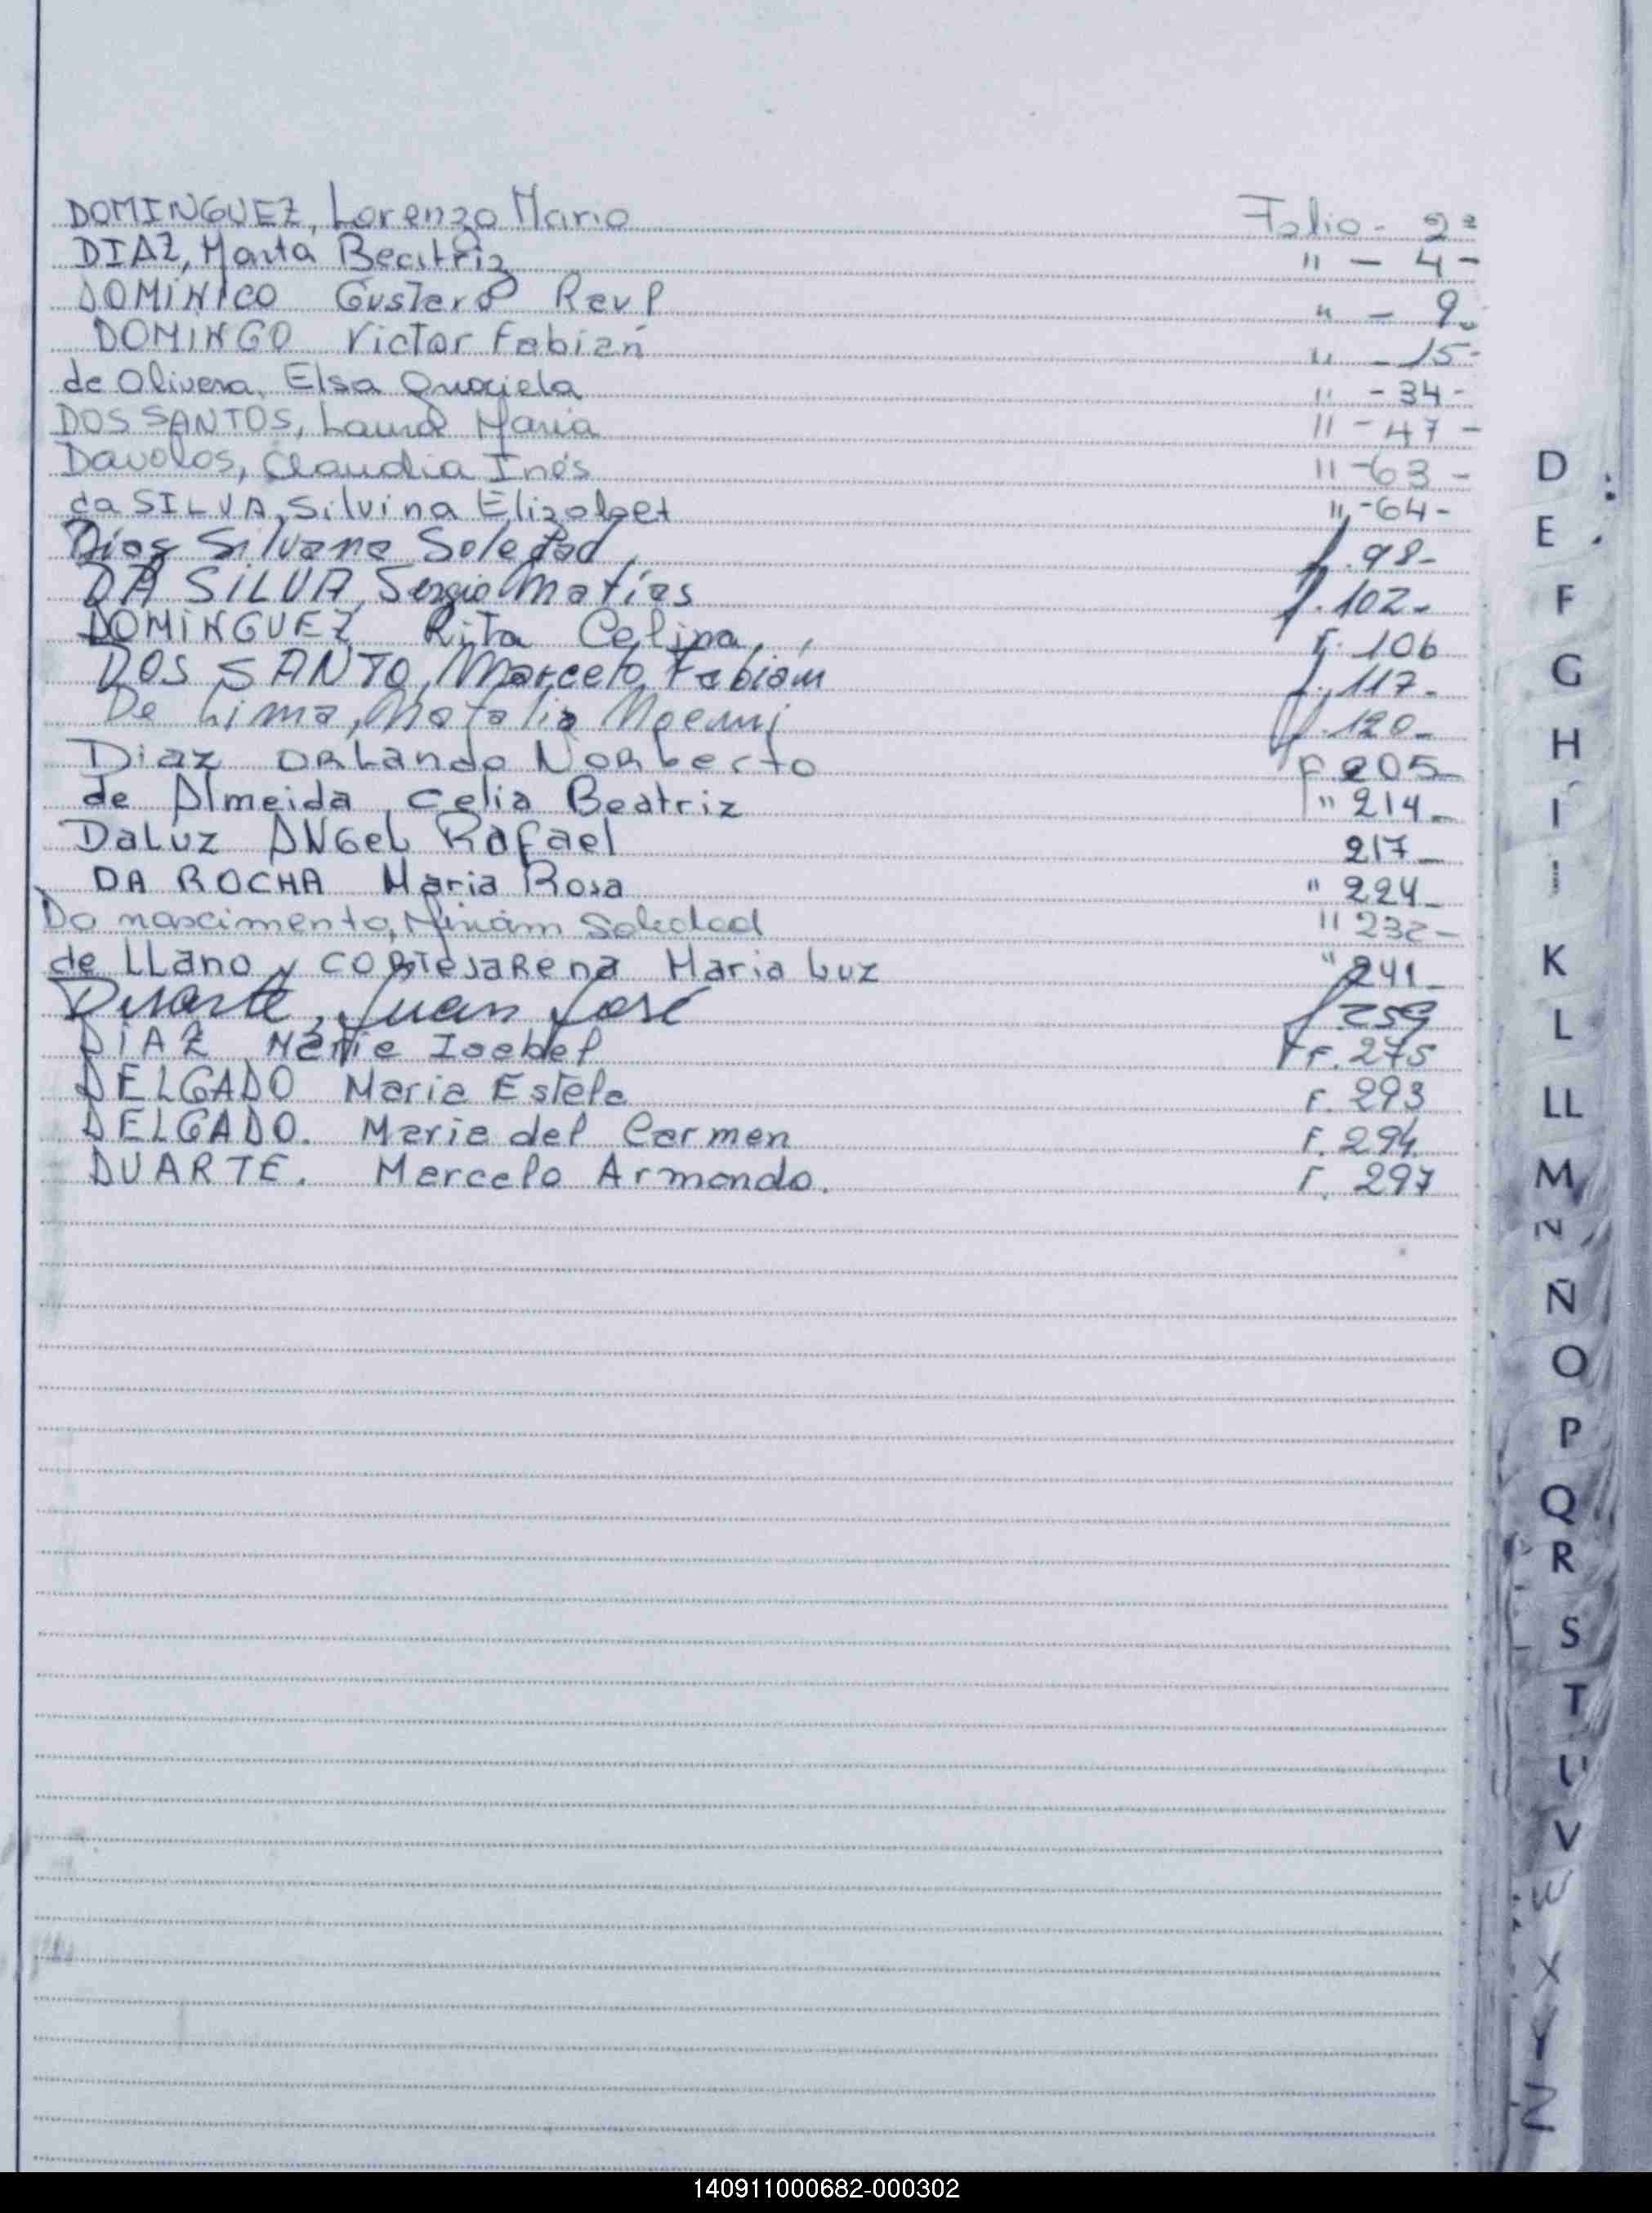 DOMINGUEZ, Lorenzo Mario Folio - 2=
DIAZ, Marta Beatriz " - 4 -
DOMINICO Gustavo Raul " - 9.
DOMINGO Victor Fabián " - 15 -
de Olivera, Elsa Graciela " - 34 -
DOS SANTOS, Laura Maria " - 47 -
Davolos, Claudia Inés " - 63 -
da SILVA, Silvina Elizabet " - 64 -
Diaz Silvana Soledad f. 98 -
DA SILVA, Sergio Matías f. 102 -
DOMINGUEZ Rita Celina F. 106
DOS SANTO, Marcelo Fabián f. 117 -
De Lima, Natalia Noemi f. 120 -
Diaz ORLando NoRberto F 205 -
de Almeida, Celia Beatriz " 214 -
DaLuz ANGeL Rafael 217 -
DA ROCHA Maria Rosa " 224 -
Do nascimento, Miriam Soledad " 232 -
de LLano y CORTeJaRena Maria Luz " 241 -
Duarte, Juan José f 259
DIAZ Marie Isabel F. 275
DELGADO Maria Estela F. 293
DELGADO. Maria del Carmen F. 294
DUARTE. Marcelo Armando. F. 297
D
E
F
G
H
I
J
K
L
LL
M
N
Ñ
O
P
Q
R
S
T
U
V
W
X
Y
Z
140911000682-000302